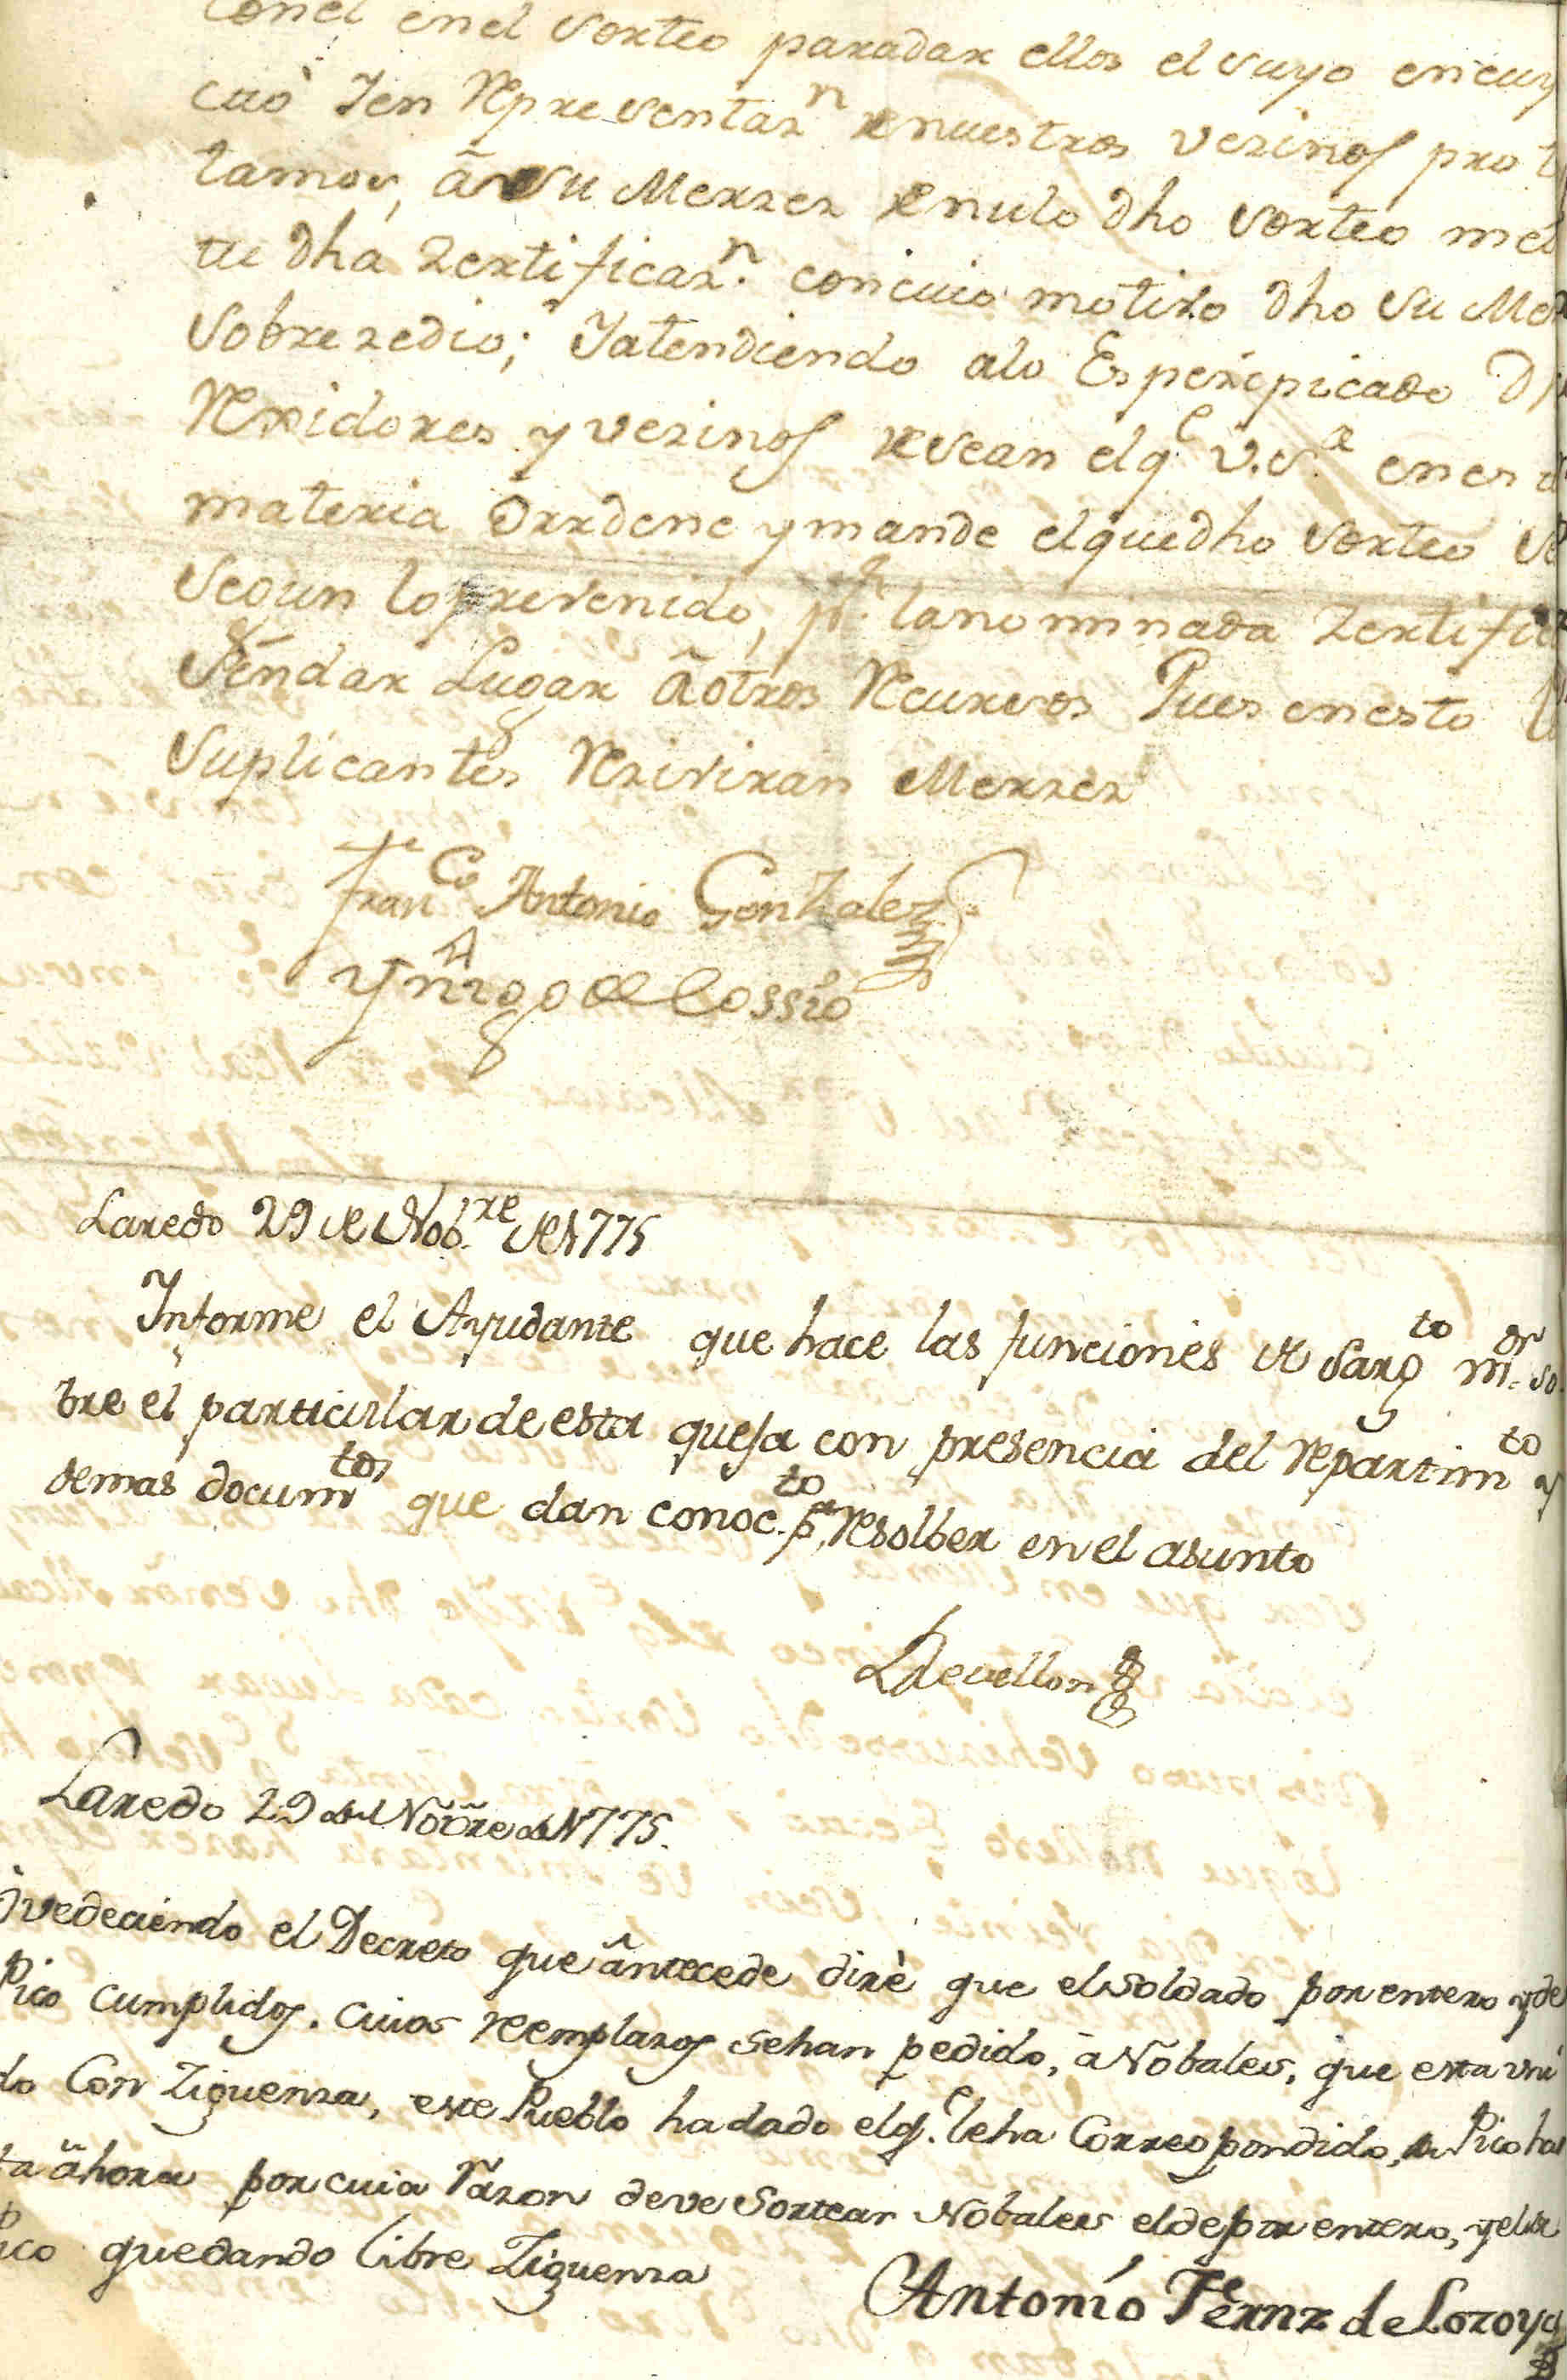 conel enel sorteo paradar ellos el suyo encuy
cuò Yen Representazn de nuestros vezinos prot
tamos, â su Merzez de nulo dho sorteo med
te dha Zertificazn. concuio motivo dho su Mer
sobrezedio; Yatendiendo alo Espezipicado D
Rexidores y vezinos desean elqe V.Sa en es
materia Orrdene ymande elquedho sorteo se
segun loprevenido, pr. lanominada Zertific
Sendar Lugar âotros Recursos Pues enesto
Suplicantes Reziviran Merzez
Franco Antonio Gonzalez
Ynigo de Cossio
Laredo 29 de Nobre de 1775
Informe el Ayudante que hace las funciones de Sargto mor so
bre el particular de esta queja con presencia del repartimto y
demas documtos que dan conocto pa. resolber en el asunto
Devellon
Laredo 29 de Nobre de 1775.
ovedeciendo el Decreto que ântecede dirè que el soldado por entero y de
Pico cumplidos. cuios reemplazos sehan pedido, â Nobales, que esta uni
do Con Ziguenza, este Pueblo hadado elq.e leha Correspondido, a Pico has
ta âhora por cuia razon deve Sortear Nobales eldepor entero, yelde
Pico quedando libre Ziguenza
Antonio Fernz de Lozoya